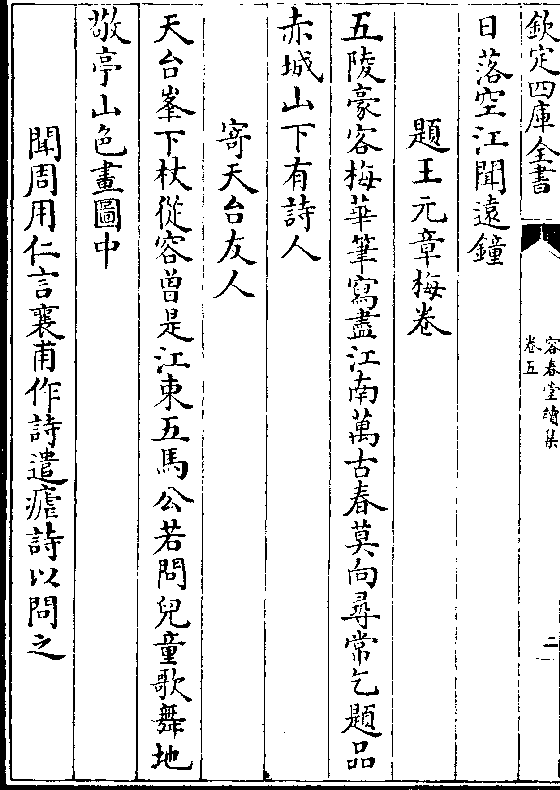 欽定四庫全書
容春堂續集
卷五
二
日落空江聞遠鐘
題王元章梅卷
五陵豪客梅華筆寫盡江南萬古春莫向尋常乞題品
赤城山下有詩人
寄天台友人
天台峯下杖從容曾是江東五馬公若問兒童歌舞地
敬亭山色畫圖中
聞周用仁言襄甫作詩遣瘧詩以問之